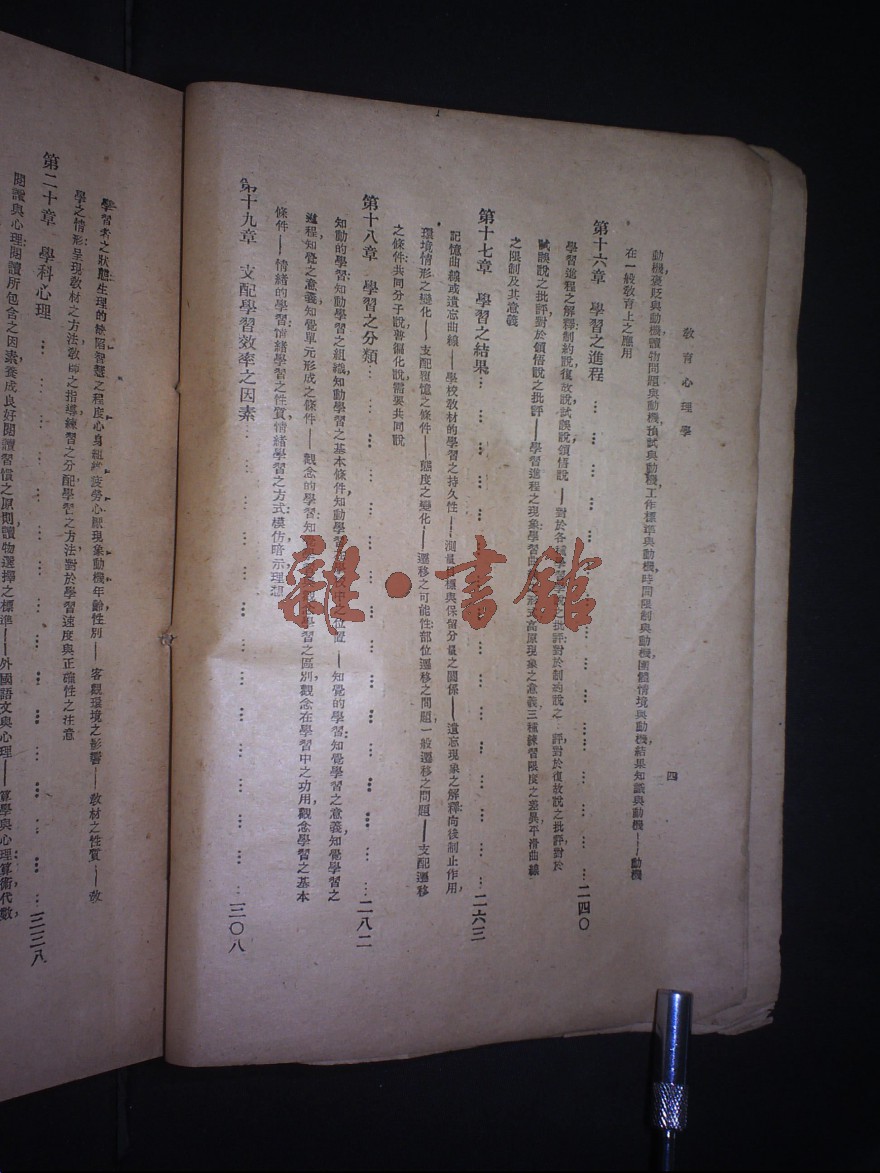 教育心理學
四
動機，褒貶與動機，讀物問題與動機，預試與動機，工作標準與動機，時間限制與動機，團體情境與動機，結果知識與動機——動機
在一般教育上之應用
第十六章 學習之進程…………二四〇
學習進程之解釋：制約說，復放說，試誤說，領悟說——對於各種學習學說之批評：對於制約說之 評，對於復放說之批評，對於
試誤說之批評，對於領悟說之批評——學習進程之現象：學習曲 形式，高原現象之意義，三種練習限度之差異，平滑曲線
之限制及其意義
第十七章 學習之結果…………二六三
記憶曲線或遺忘曲線——學校教材的學習之持久性——測量 與保留分量之關係——遺忘現象之解釋：向後制止作用，
環境情形之變化——支配覆憶之條件——態度之變化——遷移之可能性：部位遷移之問題，一般遷移之問題——支配遷移
之條件：共同分子說，普偏化說，需要共同說
第十八章 學習之分類…………二八二
知動的學習：知動學習之組織，知動學習之基本條件，知動學習 中之位置——知覺的學習：知覺學習之意義，知覺學習之
進程，知覺之意義，知覺單元形成之條件——觀念的學習：知 觀念學習之區別，觀念在學習中之功用，觀念學習之基本
條件——情緒的學習：情緒學習之性質，情緒學習之方式：模仿，暗示，理想
第十九章 支配學習效率之因素…………三〇八
學習者之狀態：生理的缺陷，智慧之程度，心身組織，疲勞，心厭現象，動機，年齡，性別——客觀環境之影響——教材之性質——教
學之情形：呈現教材之方法，教師之指導，練習之分配，學習之方法，對於學習速度與正確性之注意
第二十章 學科心理…………三三八
閱讀與心理：閱讀所包含之因素，養成良好閱讀習慣之原則，讀物選擇之標準——外國語文與心理——算學與心理：算術，代數，
雜·書館